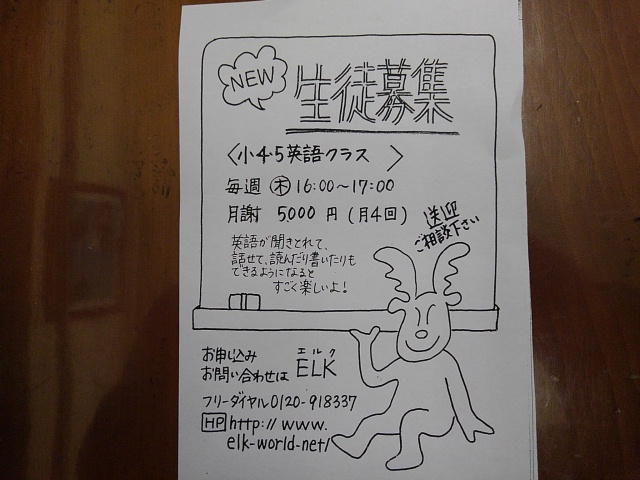 NEW
生徒募集
〈小4・5英語クラス 〉
毎週 ㊍ 16:00～17:00
月謝 5000 円 (月4回)
送迎
ご相談下さい
英語が聞きとれて、
話せて、読んだり書いたりも
できるようになると
すごく楽しいよ!
お申し込み
お問い合わせは
エルク
ELK
フリーダイヤル 0120-918337
HP http://www.
elk-world-net/